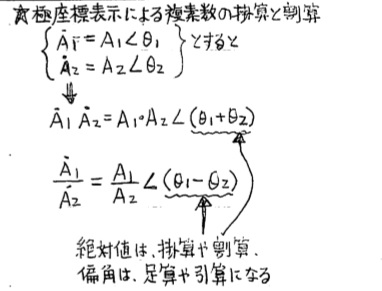 ☆極座標表示による複素数の掛算と割算
Ȧ1 = A1∠θ1
Ȧ2 = A2∠θ2
とすると
⇓
Ȧ1 Ȧ2 = A1・A2∠(θ1+θ2)
Ȧ1/Ȧ2 = A1/A2 ∠(θ1-θ2)
絶対値は、掛算や割算、
偏角は、足算や引算になる